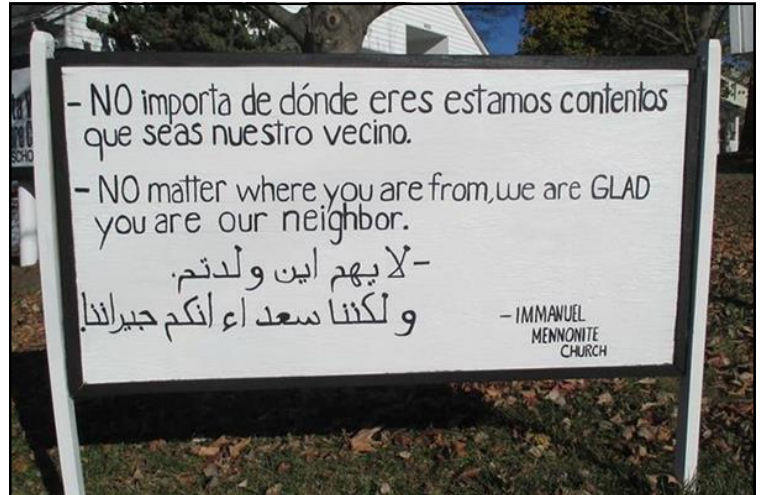 - NO importa de dónde eres estamos contentos
que seas nuestro vecino.
- NO matter where you are from, we are GLAD
you are our neighbor.
- لا يهم اين ولدتم.
و لكننا سعداء انكم جيراننا!
- IMMANUEL
MENNONITE
CHURCH
SCHO